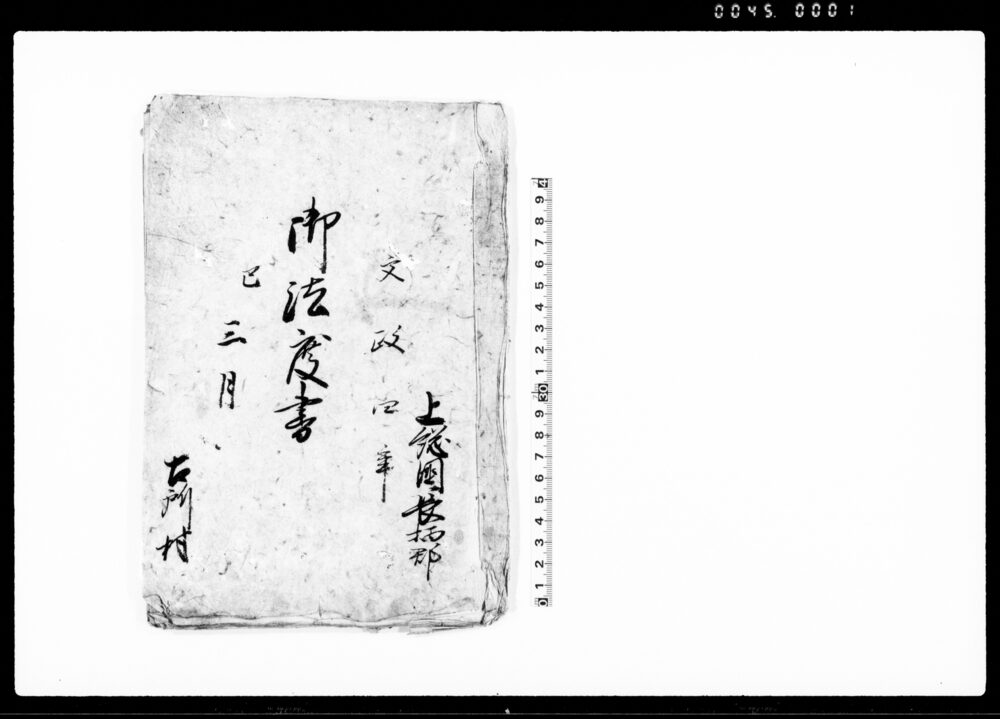 0045. 0001
上総國長柄郡
文政四年
御法度書
巳三月
古所村
0 1 2 3 4 5 6 7 8 9 30 1 2 3 4 5 6 7 8 9 4